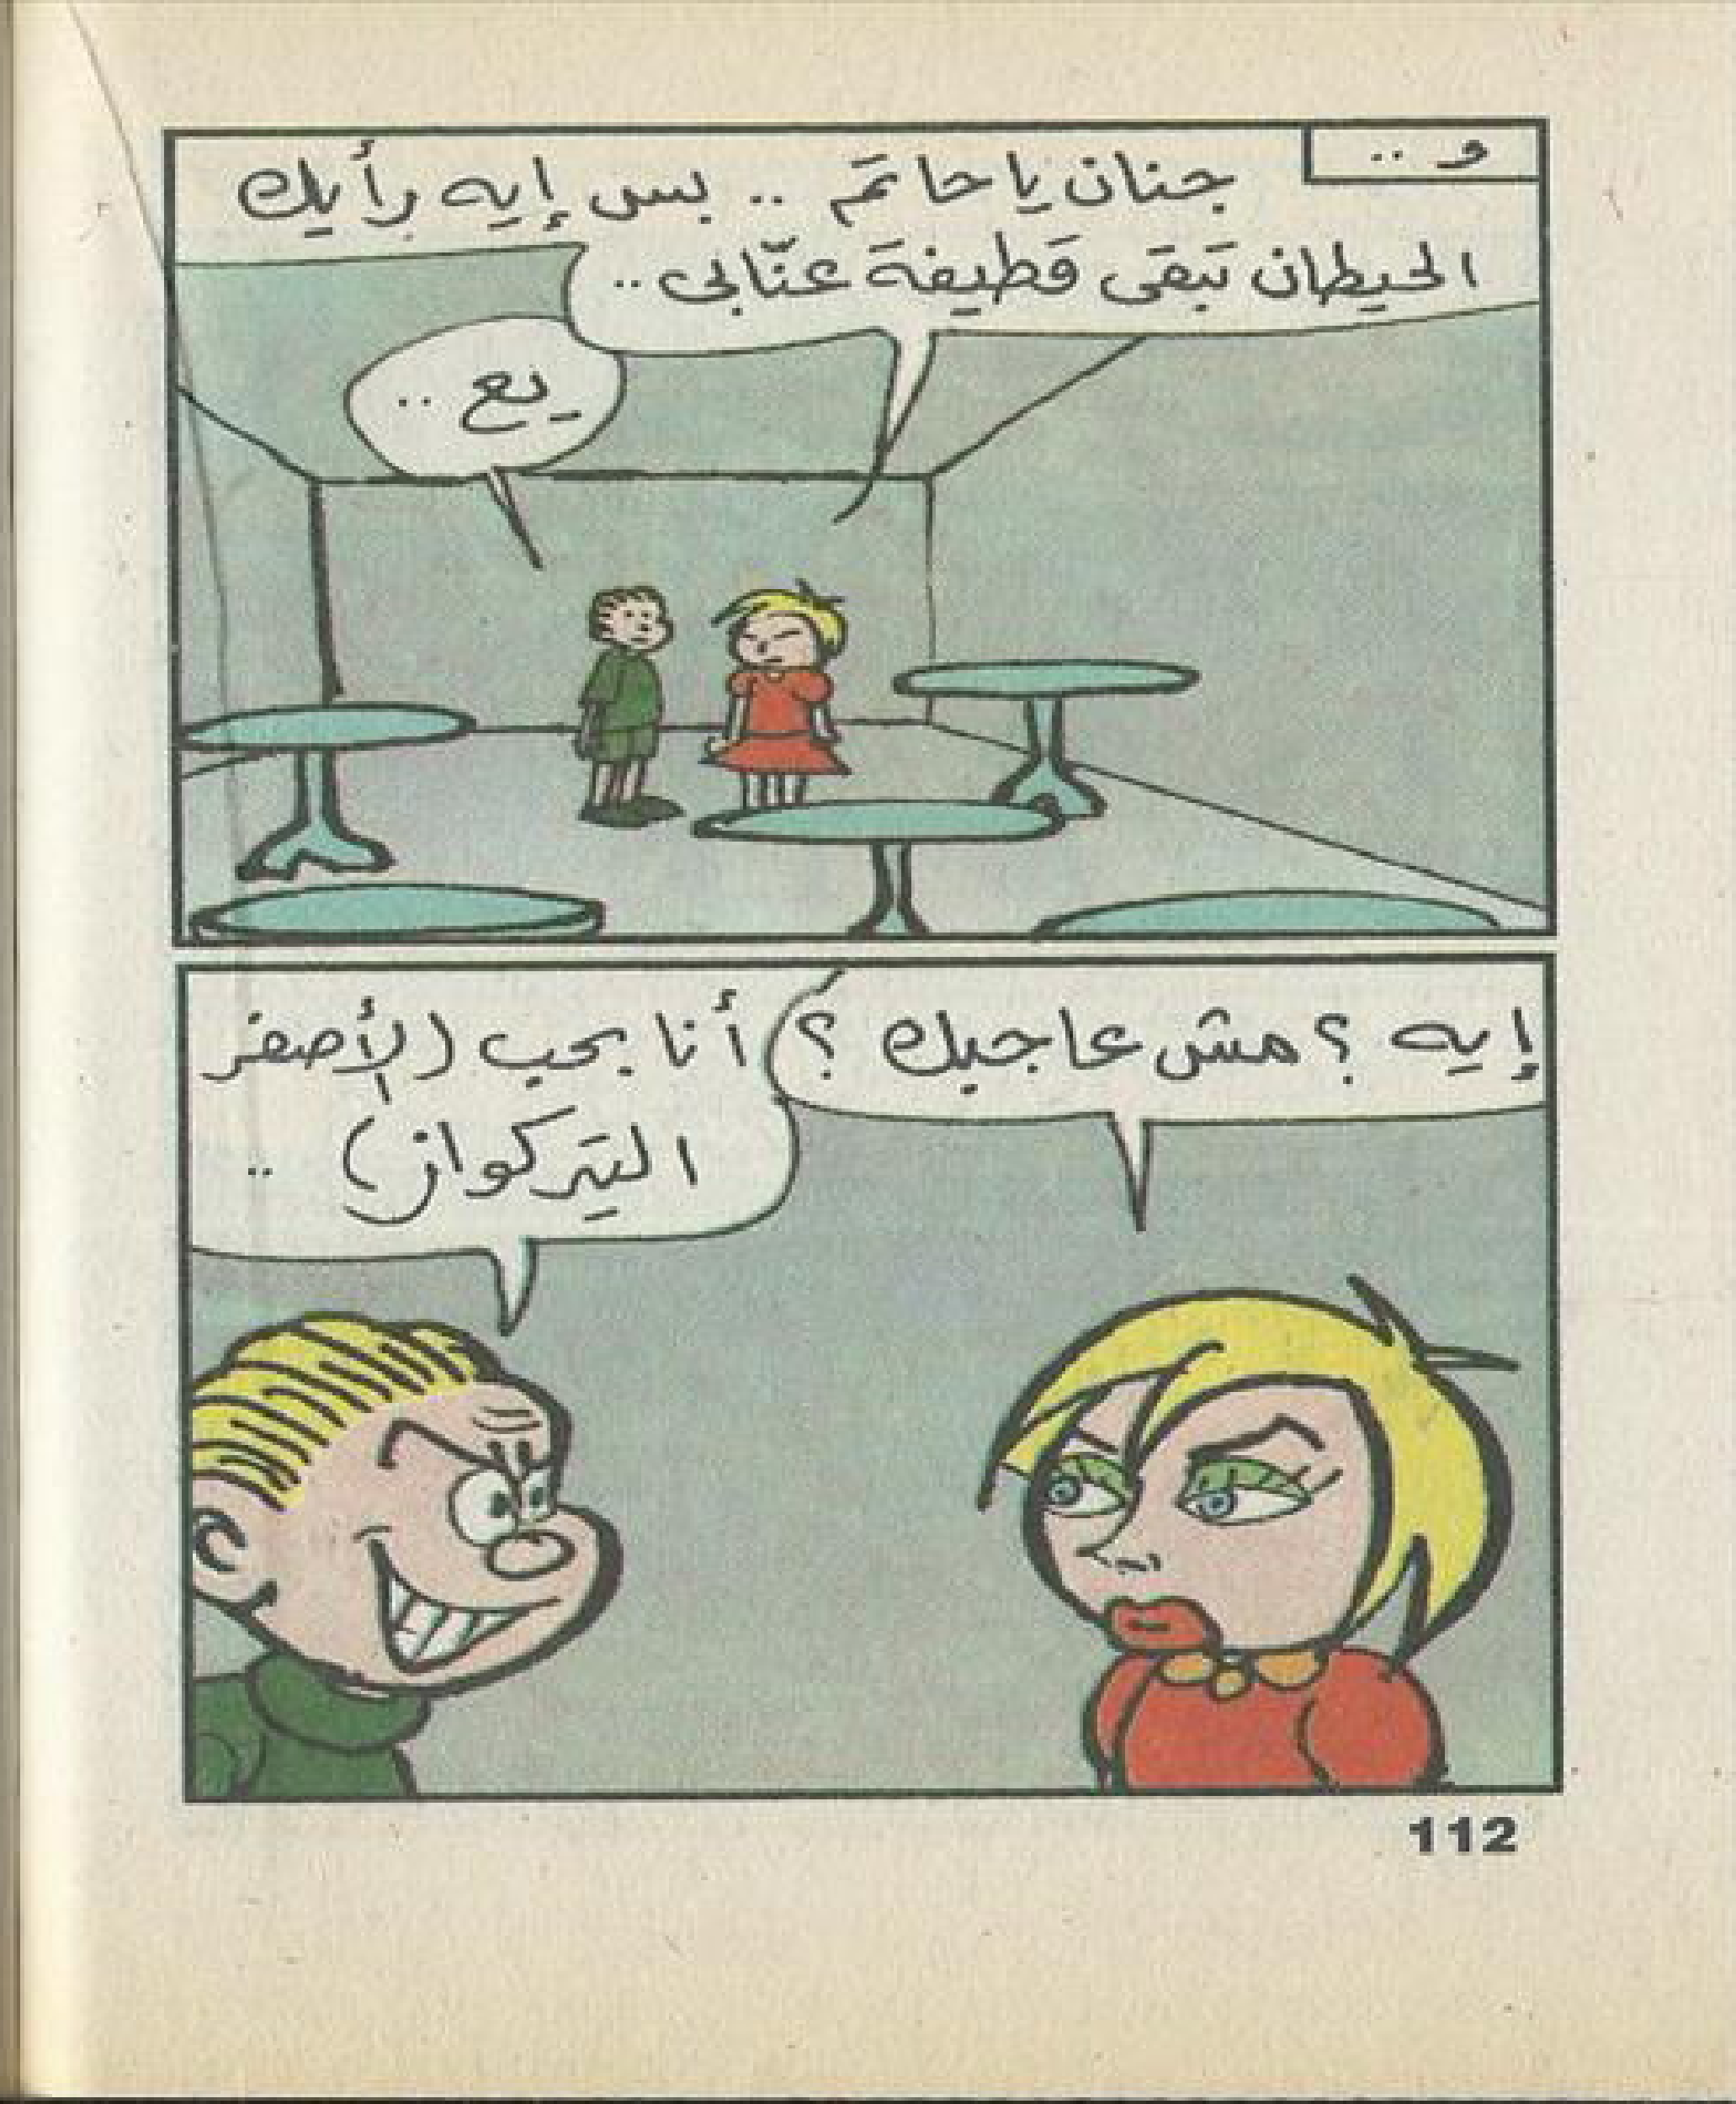 و ..
جنان يا حاتم .. بس إيه رأيك
الحيطان تبقى قطيفة عنّابى ..
يع ..
إيه ؟ مش عاجبك ؟
أنا بحب (الأصفر
التركواز) ..
112